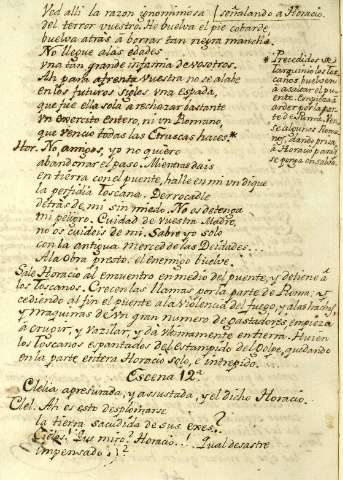 Ved allí la razón ignominiosa (señalando a Horacio.
del terror vuestro. Me buelva el pie cobarde,
buelva atrás à borrar tan negra mancha.
No llegue a las edades
vna tan grande infamia de vosotros.
Ah para afrenta vuestra no se alabe
en los futuros siglos vna espada,
que fue ella sola à rechazar bastante
vn exercito entero, ni vn Romano,
que venció todas las Etruscas haces.*
Hor. No, amigos, yo no quiero
abandonar el paso. Mientras dais
en tierra con el puente, halle en mi vn dique
la perfidia Toscana. Derrocadle
detrás de mi sin miedo. No os detenga
mi peligro. Cuidad de vuestra Madre,
no os cuideis de mi. Sabre yo solo
con la antigua merced de las Deidades...
A la Obra presto: el enemigo buelve.
*Precedidos de
Tarquinio los Tos-
canos, buelven
à asaltar el pu-
ente. Empieza à
arder por la par-
te de Roma. Ven-
se algunas Roma-
nos, dando prisa
à Horacio para q
se ponga en salvo.
Sale Horacio al encuentro en medio del puente, y detiene à
los Toscanos. Crecen las llamas por la parte de Roma; y
cediendo al fin el puente à la violencia del fuego, y à las hachas,
y maquinas de vn gran numero de Gastadores, empieza
à crugir, y vazilar, y da vltimamente en tierra. Huien
los Toscanos espantados del Estampido del Golpe, quedando
en la parte entera Horacio solo, è intrepido.
Escena 12.ª
Clelia apresurada, y assustada, y el dicho Horacio.
Clel. Ah es esto desplomarse
la tierra sacudida de sus exes?
Cielos! Qué miro? Horacio..! Qual desastre
impensado..!?